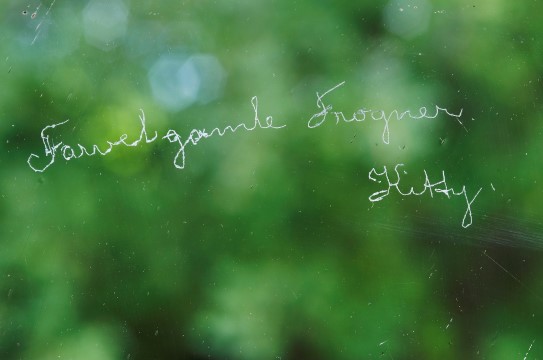 Farvel gamle Frogner
Kitty